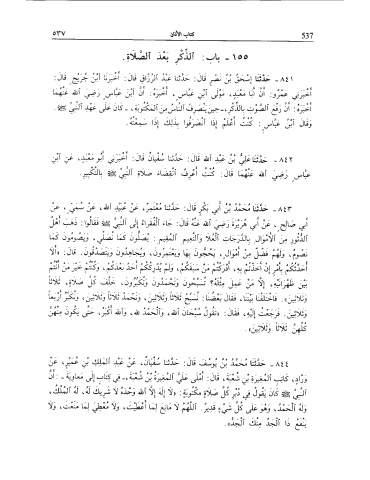 ٥٣٧ كتاب الأذان 537
١٥٥ - باب: الذِّكْرِ بَعْدَ الصَّلَاةِ.
٨٤١ - حَدَّثَنَا إِسْحَقُ بْنُ نَصْرٍ قَالَ: حَدَّثَنَا عَبْدُ الرَّزَّاقِ قَالَ: أَخْبَرَنَا ابْنُ جُرَيْجٍ قَالَ:
أَخْبَرَنِي عَمْرٌو: أَنَّ أَبَا مَعْبَدٍ، مَوْلَى ابْنِ عَبَّاسٍ، أَخْبَرَهُ: أَنَّ ابْنَ عَبَّاسٍ رَضِيَ اللهُ عَنْهُمَا
أَخْبَرَهُ: أَنَّ رَفْعَ الصَّوْتِ بِالذِّكْرِ، حِينَ يَنْصَرِفُ النَّاسُ مِنَ المَكْتُوبَةِ، كَانَ عَلَى عَهْدِ النَّبِيِّ ﷺ.
وَقَالَ ابْنُ عَبَّاسٍ: كُنْتُ أَعْلَمُ إِذَا انْصَرَفُوا بِذَلِكَ إِذَا سَمِعْتُهُ.
٨٤٢ - حَدَّثَنَا عَلِيُّ بْنُ عَبْدِ اللهِ قَالَ: حَدَّثَنَا سُفْيَانُ قَالَ: أَخْبَرَنِي أَبُو مَعْبَدٍ، عَنِ ابْنِ
عَبَّاسٍ رَضِيَ اللهُ عَنْهُمَا قَالَ: كُنْتُ أَعْرِفُ انْقِضَاءَ صَلَاةِ النَّبِيِّ ﷺ بِالتَّكْبِيرِ.
٨٤٣ - حَدَّثَنَا مُحَمَّدُ بْنُ أَبِي بَكْرٍ قَالَ: حَدَّثَنَا مُعْتَمِرٌ، عَنْ عُبَيْدِ اللهِ، عَنْ سُمَيٍّ، عَنْ
أَبِي صَالِحٍ، عَنْ أَبِي هُرَيْرَةَ رَضِيَ اللهُ عَنْهُ قَالَ: جَاءَ الْفُقَرَاءُ إِلَى النَّبِيِّ ﷺ فَقَالُوا: ذَهَبَ أَهْلُ
الدُّثُورِ مِنَ الأَمْوَالِ بِالدَّرَجَاتِ الْعُلَا وَالنَّعِيمِ المُقِيمِ: يُصَلُّونَ كَمَا نُصَلِّي، وَيَصُومُونَ كَمَا
نَصُومُ، وَلَهُمْ فَضْلٌ مِنْ أَمْوَالٍ، يَحُجُّونَ بِهَا وَيَعْتَمِرُونَ، وَيُجَاهِدُونَ وَيَتَصَدَّقُونَ. قَالَ: «أَلَا
أُحَدِّثُكُمْ بِأَمْرٍ إِنْ أَخَذْتُمْ بِهِ، أَدْرَكْتُمْ مَنْ سَبَقَكُمْ، وَلَمْ يُدْرِكْكُمْ أَحَدٌ بَعْدَكُمْ، وَكُنْتُمْ خَيْرَ مَنْ أَنْتُمْ
بَيْنَ ظَهْرَانَيْهِ، إِلَّا مَنْ عَمِلَ مِثْلَهُ؟ تُسَبِّحُونَ وَتَحْمَدُونَ وَتُكَبِّرُونَ، خَلْفَ كُلِّ صَلَاةٍ، ثَلَاثًا
وَثَلَاثِينَ». فَاخْتَلَفْنَا بَيْنَنَا، فَقَالَ بَعْضُنَا: نُسَبِّحُ ثَلَاثًا وَثَلَاثِينَ، وَنَحْمَدُ ثَلَاثًا وَثَلَاثِينَ، وَنُكَبِّرُ أَرْبَعًا
وَثَلَاثِينَ، فَرَجَعْتُ إِلَيْهِ، فَقَالَ: «تَقُولُ سُبْحَانَ اللهِ، وَالحَمْدُ للهِ، وَاللهُ أَكْبَرُ، حَتَّى يَكُونَ مِنْهُنَّ
كُلِّهِنَّ ثَلَاثًا وَثَلَاثِينَ».
٨٤٤ - حَدَّثَنَا مُحَمَّدُ بْنُ يُوسُفَ قَالَ: حَدَّثَنَا سُفْيَانُ، عَنْ عَبْدِ المَلِكِ بْنِ عُمَيْرٍ، عَنْ
وَرَّادٍ، كَاتِبِ المُغِيرَةِ بْنِ شُعْبَةَ، قَالَ: أَمْلَى عَلَيَّ المُغِيرَةُ بْنُ شُعْبَةَ، فِي كِتَابٍ إِلَى مُعَاوِيَةَ: أَنَّ
النَّبِيَّ ﷺ كَانَ يَقُولُ فِي دُبُرِ كُلِّ صَلَاةٍ مَكْتُوبَةٍ: «لَا إِلَهَ إِلَّا اللهُ وَحْدَهُ لَا شَرِيكَ لَهُ، لَهُ المُلْكُ،
وَلَهُ الحَمْدُ، وَهُوَ عَلَى كُلِّ شَيْءٍ قَدِيرٌ. اللَّهُمَّ لَا مَانِعَ لِمَا أَعْطَيْتَ، وَلَا مُعْطِيَ لِمَا مَنَعْتَ، وَلَا
يَنْفَعُ ذَا الجَدِّ مِنْكَ الجَدُّ».